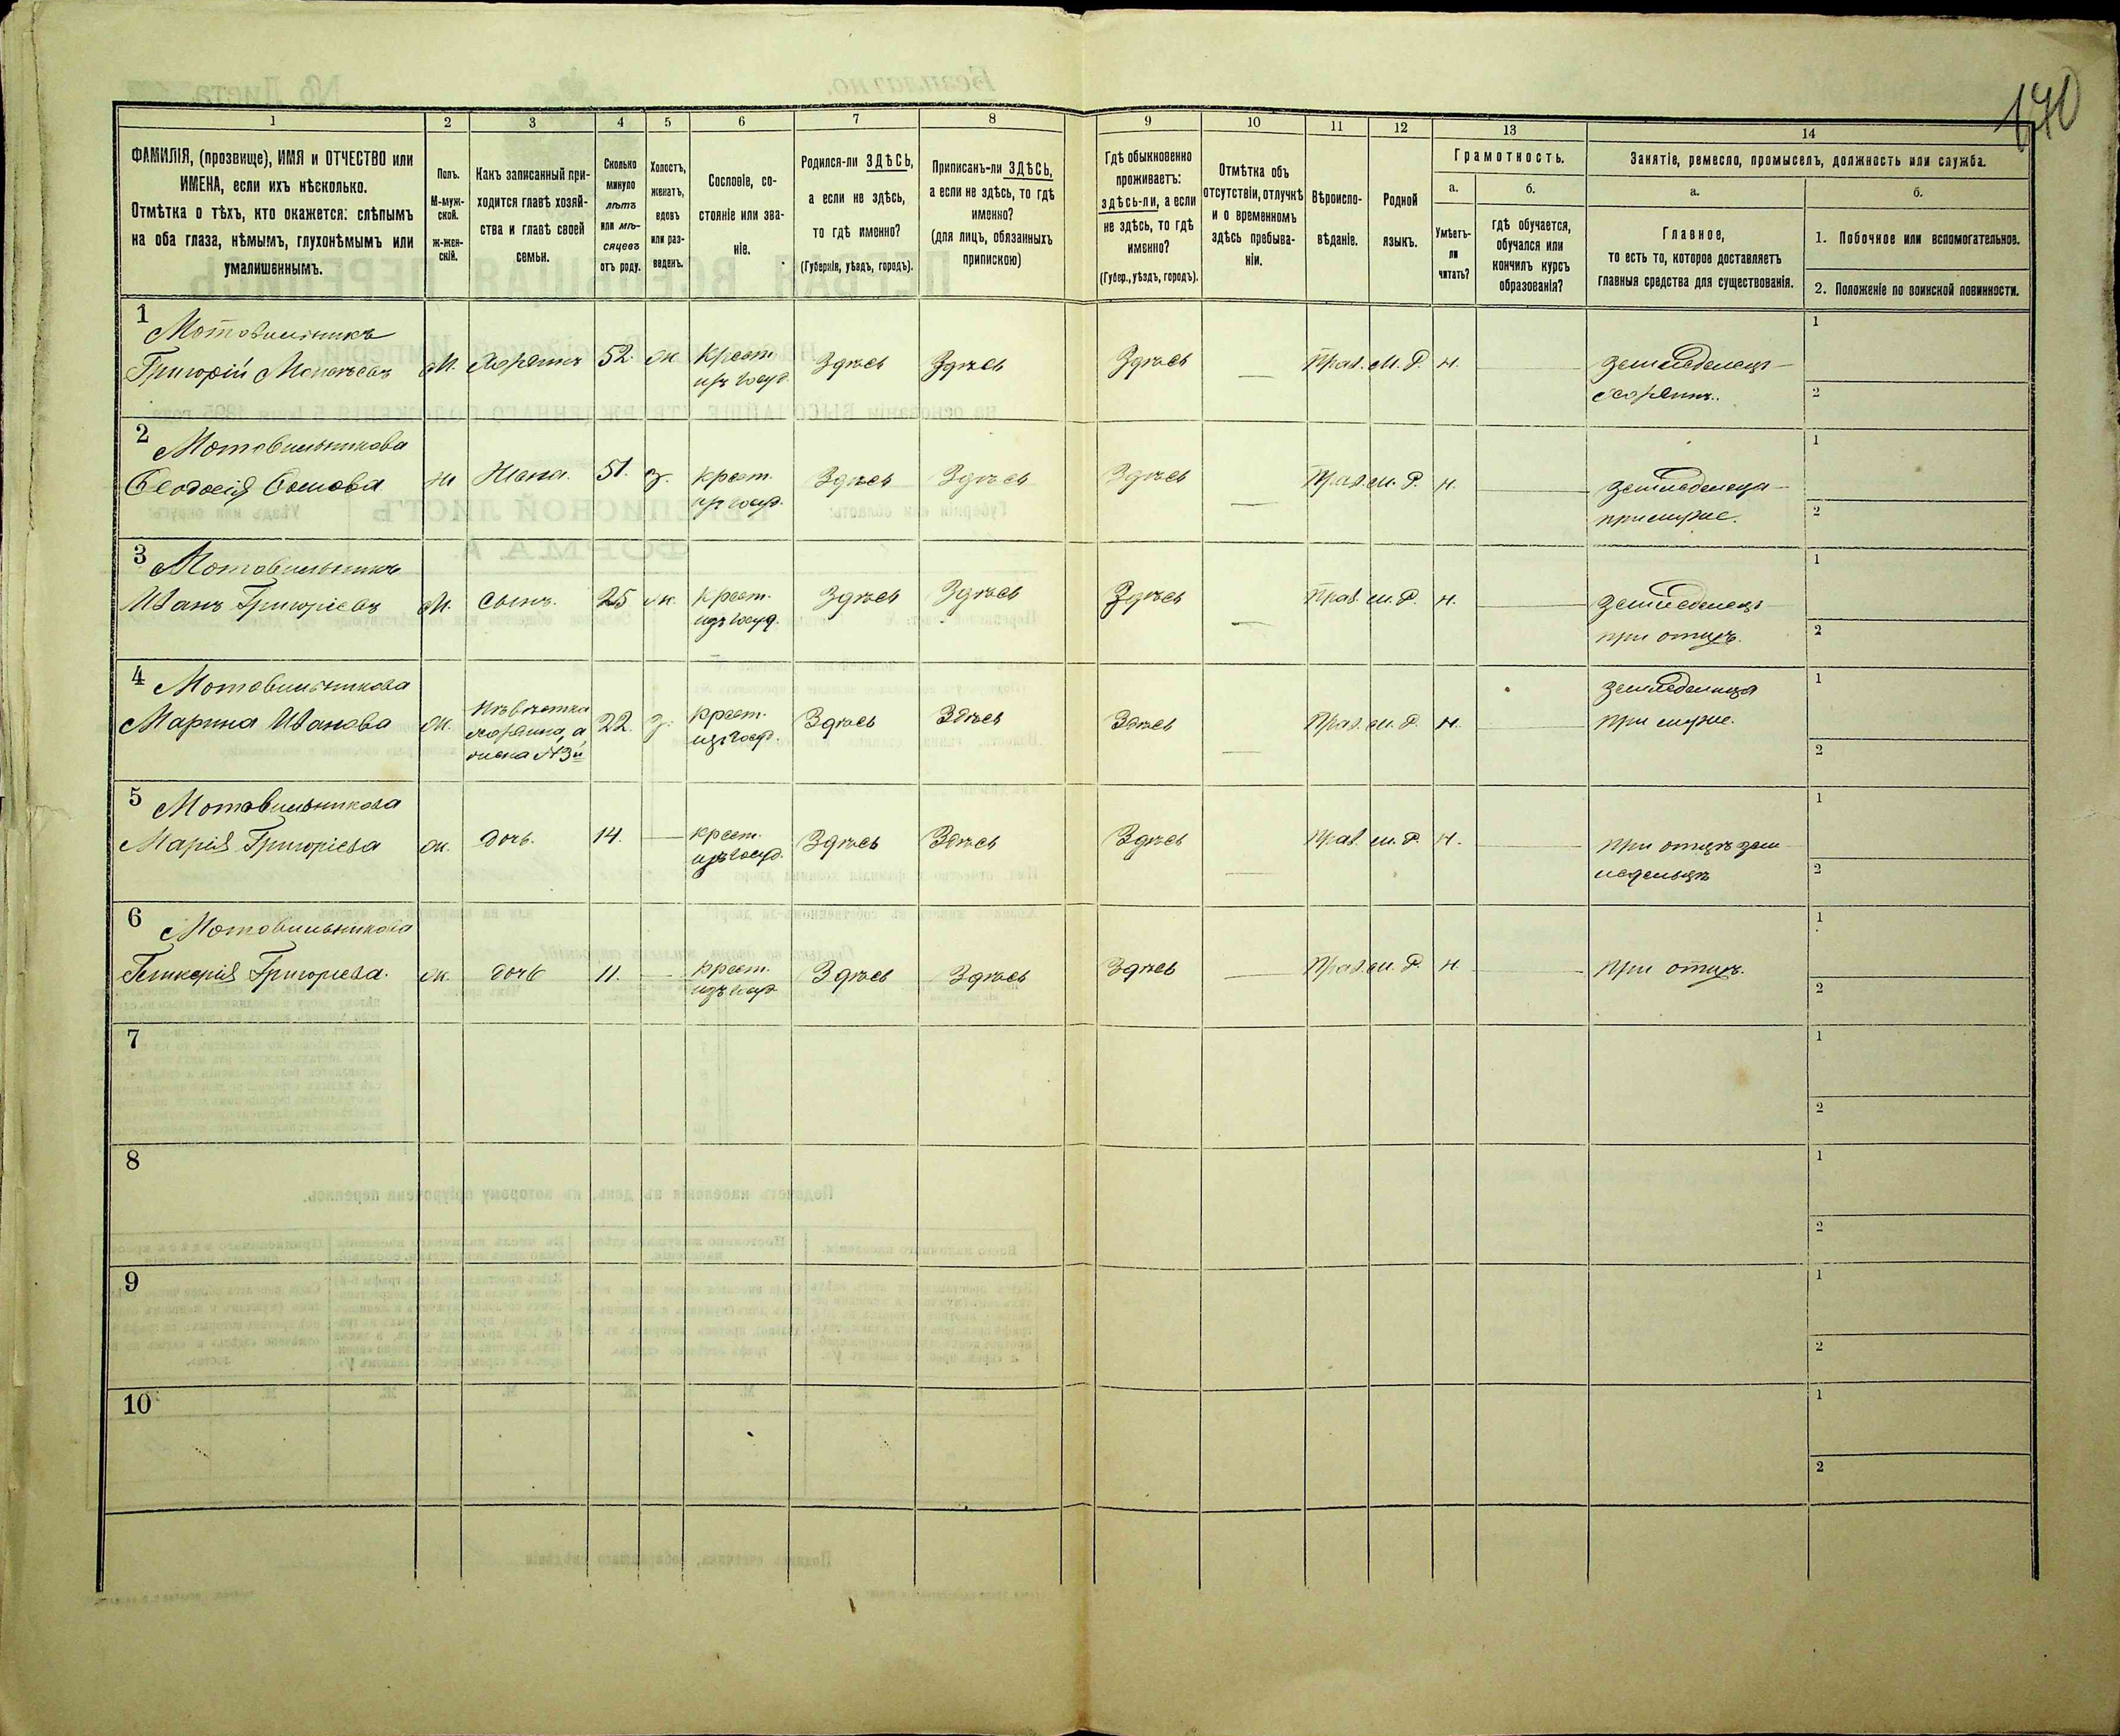 140
1 2 3 4 5 6 7 8 9 10 11 12 13 14
ФАМИЛІЯ, (прозвище), ИМЯ и ОТЧЕСТВО или
ИМЕНА, если ихъ нѣсколько.
Отмѣтка о тѣхъ, кто окажется: слѣпымъ
на оба глаза, нѣмымъ, глухонѣмымъ или
умалишеннымъ.
Полъ.
М-муж-
ской.
ж-жен-
скій.
Какъ записанный при-
ходится главѣ хозяй-
ства и главѣ своей
семьи.
Сколько
минуло
лѣтъ
или мѣ-
сяцевъ
отъ роду.
Холостъ,
женатъ,
вдовъ
или раз-
веденъ.
Сословіе, со-
стояніе или зва-
ніе.
Родился-ли ЗДѢСЬ,
а если не здѣсь,
то гдѣ именно?
(Губернія, уѣздъ, городъ).
Приписанъ-ли ЗДѢСЬ,
а если не здѣсь, то гдѣ
именно?
(для лицъ, обязанныхъ
припискою)
Гдѣ обыкновенно
проживаетъ:
здѣсь-ли, а если
не здѣсь, то гдѣ
именно?
(Губер., уѣздъ, городъ).
Отмѣтка объ
отсутствіи, отлучкѣ
и о временномъ
здѣсь пребыва-
ніи.
Вѣроиспо-
вѣданіе.
Родной
языкъ.
Грамотность.
а.
Умѣетъ-
ли
читать?
б.
гдѣ обучается,
обучался или
кончилъ курсъ
образованія?
Занятіе, ремесло, промыселъ, должность или служба.
а.
Главное,
то есть то, которое доставляетъ
главныя средства для существованія.
б.
1. Побочное или вспомогательное.
2. Положеніе по воинской повинности.
1 Мотовильникъ
Григорій М. Хозяинъ 52. ж Крест. Здѣсь Здѣсь Здѣсь — Прав. М. Р. н. — земледелецъ— 1
изъ госуд. хозяинъ. 2
2 Мотовильникова
Феодосія ж Жена. 51. з. крест. Здѣсь Здѣсь Здѣсь — Прав. м. Р. н. — земледелица— 1
изъ госуд. при мужѣ. 2
3 Мотовильникъ
Иванъ Григоріевъ М. сынъ. 25 ж. крест. Здѣсь Здѣсь Здѣсь — Прав. м. Р. н. — земледелецъ 1
изъ госуд. при отцѣ. 2
4 Мотовильникова земледелица 1
Марина Иванова ж. Невѣстка 22. з. крест. Здѣсь Здѣсь Здѣсь — Прав. м. Р. н. — при мужѣ.
хозяина, а изъ госуд.
жена №3й 2
5 Мотовильникова 1
Марія Григоріева ж. дочь. 14. — крест. Здѣсь Здѣсь Здѣсь — Прав. м. Р. н. — при отцѣ зем
изъ госуд. ледельцѣ 2
6 Мотовильникова 1
Гликерія Григоріева. ж. дочь 11. — крест. Здѣсь Здѣсь Здѣсь — Прав. м. Р. н. — при отцѣ.
изъ госуд. 2
7 1
2
8 1
2
9 1
2
10 1
2